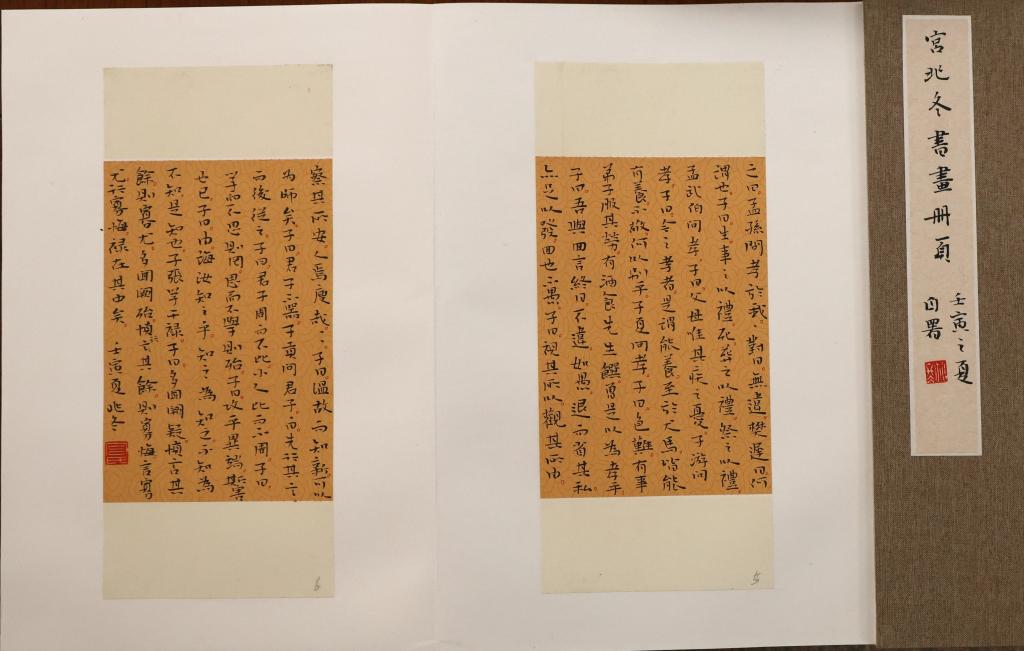 宮兆冬書畫冊頁
壬寅之夏
自署
之曰孟孫問孝於我、對曰無違樊遲曰何
謂也子曰生事之以禮死葬之以禮祭之以禮
孟武伯問孝子曰父母唯其疾之憂子游問
孝子曰今之孝者是謂能養至於犬馬皆能
有養不敬何以別乎子夏問孝子曰色難有事
弟子服其勞有酒食先生饌曾是以為孝乎
子曰吾與回言終日不違如愚退而省其私
亦足以發回也不愚子曰視其所以觀其所由
5
察其所安人焉廋哉、、子曰溫故而知新可以
為師矣子曰君子不器子貢問君子、曰先行其言
而後從之子曰君子周而不比小人比而不周子曰
學而不思則罔思而不學則殆子曰攻乎異端斯害
也已子曰由誨汝知之乎知之為知之不知為
不知是知也子張學干祿子曰多聞闕疑慎言其
餘則寡尤多聞闕殆慎其餘則寡悔言寡
尤行寡悔祿在其中矣 壬寅夏兆冬
6